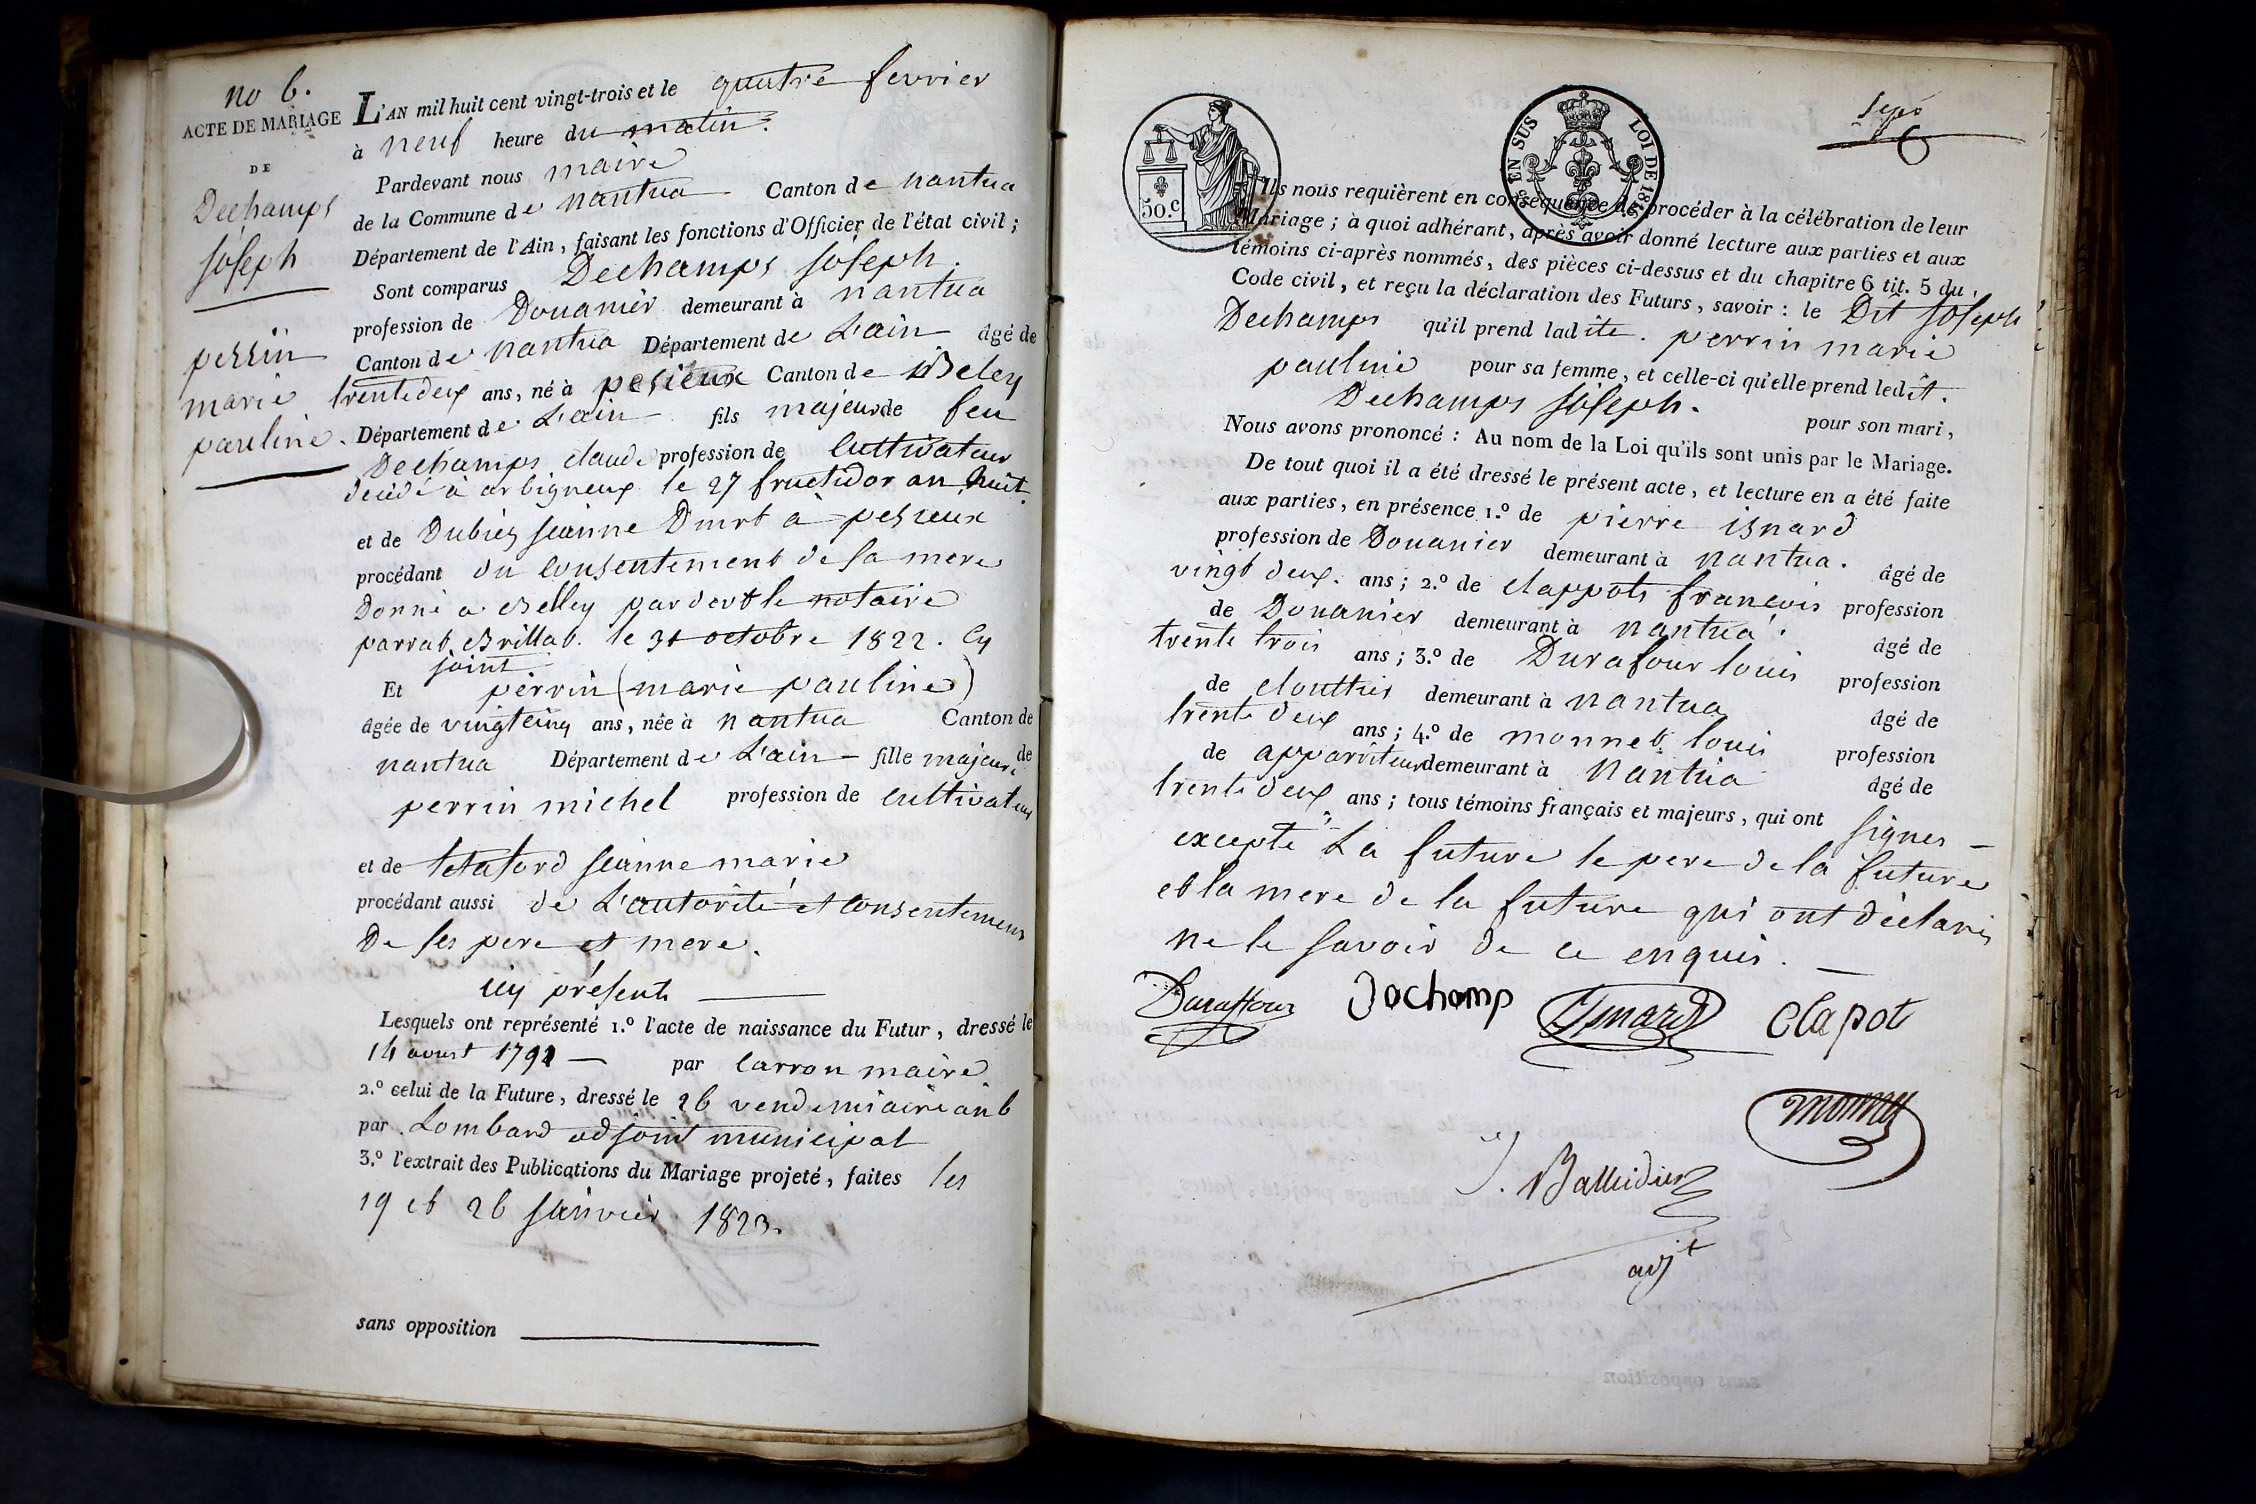 no 6.
ACTE DE MARIAGE
DE
Dechamps
joseph
perrin
marie
pauline.
L'AN mil huit cent vingt-trois et le quatre fevrier
à neuf heure du matin.
Pardevant nous maire
de la Commune de nantua Canton de nantua
Département de l'Ain, faisant les fonctions d'Officier de l'état civil;
Sont comparus Dechamps joseph.
profession de Douanier demeurant à nantua
Canton de nantua Département de L'ain âgé de
trente deux ans, né à pezieux Canton de Beley
Département de L'ain fils majeur de feu
Dechamps claude profession de Cultivateur
décédé à arbigneux le 27 fructidor an huit
et de Dubiez jeanne Dmrt à pezieux
procédant du consentement de sa mere
Donné a Belley pardevt le notaire
parrat Brillat le 31 octobre 1822. Cy
joint
Et perrin (marie pauline)
âgée de vingt cinq ans, née à nantua Canton de
nantua Département de L'ain fille majeure de
perrin michel profession de cultivateur
et de jeanne marie
procédant aussi de L'autorité et consentement
De ses pere et mere.
icy présents
Lesquels ont représenté 1.º l'acte de naissance du Futur, dressé le
14 avust 1791 par Carron maire
2.º celui de la Future, dressé le 26 vendemiaire an 6
par Lombard adjoint municipal
3.º l'extrait des Publications du Mariage projeté, faites les
19 et 26 janvier 1823.
sans opposition
50.c
25 EN SUS LOI DE 1816
6
Ils nous requièrent en conséquence de procéder à la célébration de leur
Mariage; à quoi adhérant, après avoir donné lecture aux parties et aux
témoins ci-après nommés, des pièces ci-dessus et du chapitre 6 tit. 5 du
Code civil, et reçu la déclaration des Futurs, savoir: le Dit joseph
Dechamps qu'il prend ladite. perrin marie
pauline pour sa femme, et celle-ci qu'elle prend ledit.
Dechamps joseph. pour son mari,
Nous avons prononcé: Au nom de la Loi qu'ils sont unis par le Mariage.
De tout quoi il a été dressé le présent acte, et lecture en a été faite
aux parties, en présence 1.º de pierre isnard
profession de Douanier demeurant à nantua. âgé de
vingt deux. ans; 2.º de clappots francois profession
de Douanier demeurant à nantua. âgé de
trente trois ans; 3.º de Durafour louis profession
de cloutier demeurant à nantua âgé de
trente deux ans; 4.º de monnet louis profession
de apparriteur demeurant à Nantua âgé de
trente deux ans; tous témoins français et majeurs, qui ont signés
excepté La future le pere de la future
et la mere de la future qui ont déclarés
ne le savoir de ce enquis.
Duraffour Dochomp Isnard Clapot
monnet
J. Balleidier
adjt